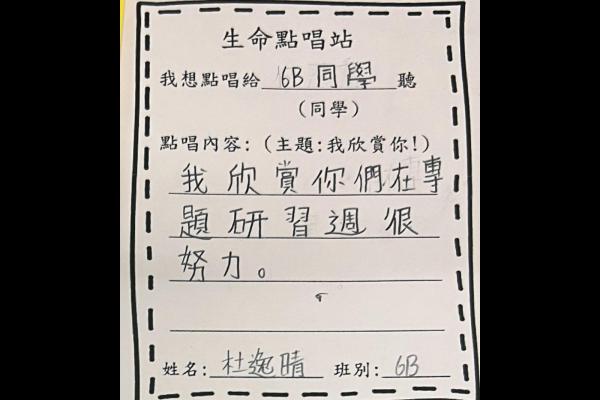 生命點唱站
我想點唱給 6B 同學 聽
(同學)
點唱內容:(主題:我欣賞你!)
我欣賞你們在專
題研習週很
努力。
姓名: 杜逸晴 班別: 6B